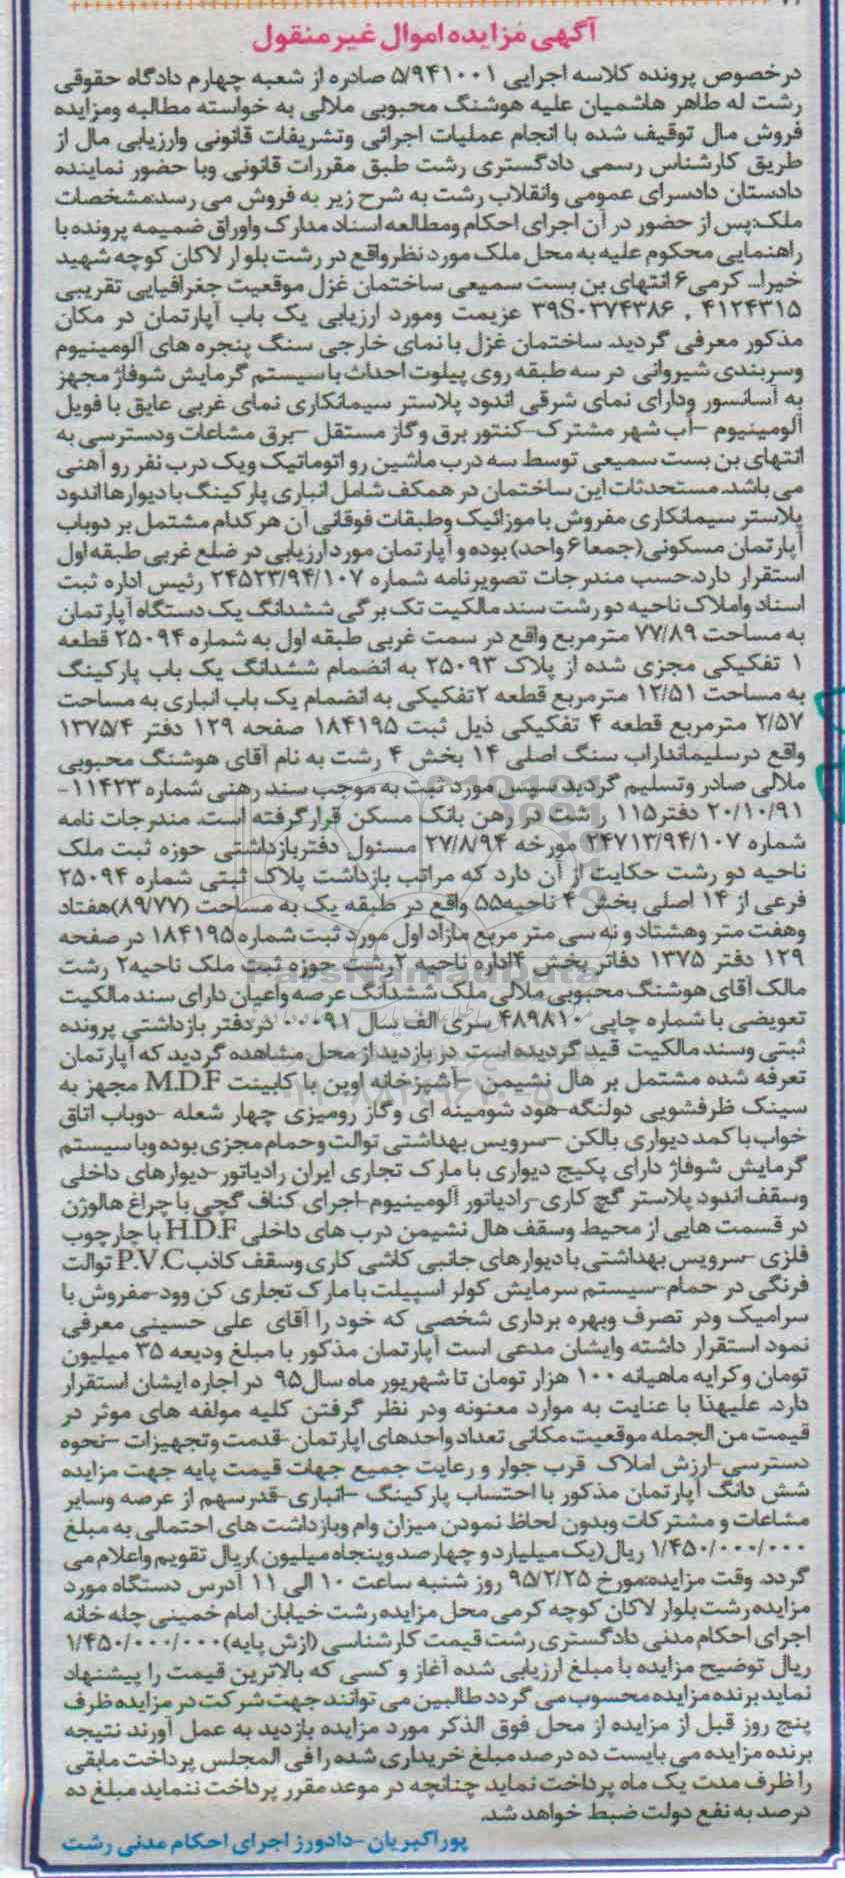 آگهی مزایده اموال غیر منقول
درخصوص پرونده کلاسه اجرایی ۵/۹۴۱۰۰۱ صادره از شعبه چهارم دادگاه حقوقی
رشت له طاهر هاشمیان علیه هوشنگ محبوبی ملالی به خواسته مطالبه ومزایده
فروش مال توقیف شده با انجام عملیات اجرائی وتشریفات قانونی وارزیابی مال از
طریق کارشناس رسمی دادگستری رشت طبق مقررات قانونی وبا حضور نماینده
دادستان دادسرای عمومی وانقلاب رشت به شرح زیر به فروش می رسد:مشخصات
ملک:پس از حضور در آن اجرای احکام ومطالعه اسناد مدارک واوراق ضمیمه پرونده با
راهنمایی محکوم علیه به محل ملک مورد نظر واقع در رشت بلوار لاکان کوچه شهید
خیرا... کرمی۶ انتهای بن بست سمیعی ساختمان غزل موقعیت جغرافیایی تقریبی
۴۱۲۴۳۱۵ , ۳۹S۰۳۷۴۳۸۶ عزیمت ومورد ارزیابی یک باب آپارتمان در مکان
مذکور معرفی گردید. ساختمان غزل با نمای خارجی سنگ پنجره های آلومینیوم
وسربندی شیروانی در سه طبقه روی پیلوت احداث با سیستم گرمایش شوفاژ مجهز
به آسانسور ودارای نمای شرقی اندود پلاستر سیمانکاری نمای غربی عایق با فویل
آلومینیوم -آب شهر مشترک-کنتور برق وگاز مستقل -برق مشاعات ودسترسی به
انتهای بن بست سمیعی توسط سه درب ماشین رو اتوماتیک ویک درب نفر رو آهنی
می باشد. مستحدثات این ساختمان در همکف شامل انباری پارکینگ با دیوارها اندود
پلاستر سیمانکاری مفروش با موزائیک وطبقات فوقانی آن هرکدام مشتمل بر دوباب
آپارتمان مسکونی(جمعا ۶ واحد) بوده و آپارتمان مورد ارزیابی در ضلع غربی طبقه اول
استقرار دارد.حسب مندرجات تصویرنامه شماره ۲۴۵۲۳/۹۴/۱۰۷ رئیس اداره ثبت
اسناد واملاک ناحیه دو رشت سند مالکیت تک برگی ششدانگ یک دستگاه آپارتمان
به مساحت ۷۷/۸۹ مترمربع واقع در سمت غربی طبقه اول به شماره ۲۵۰۹۴ قطعه
۱ تفکیکی مجزی شده از پلاک ۲۵۰۹۳ به انضمام ششدانگ یک باب پارکینگ
به مساحت ۱۲/۵۱ مترمربع قطعه ۲تفکیکی به انضمام یک باب انباری به مساحت
۲/۵۷ مترمربع قطعه ۴ تفکیکی ذیل ثبت ۱۸۴۱۹۵ صفحه ۱۲۹ دفتر ۱۳۷۵/۴
واقع درسلیمانداراب سنگ اصلی ۱۴ بخش ۴ رشت به نام آقای هوشنگ محبوبی
ملالی صادر وتسلیم گردید سپس مورد ثبت به موجب سند رهنی شماره ۱۱۴۲۳-
۲۰/۱۰/۹۱ دفتر۱۱۵ رشت در رهن بانک مسکن قرار گرفته است. مندرجات نامه
شماره ۲۴۷۱۳/۹۴/۱۰۷ مورخه ۲۷/۸/۹۴ مسئول دفتربازداشتی حوزه ثبت ملک
ناحیه دو رشت حکایت از آن دارد که مراتب بازداشت پلاک ثبتی شماره ۲۵۰۹۴
فرعی از ۱۴ اصلی بخش ۴ ناحیه۵۵ واقع در طبقه یک به مساحت (۸۹/۷۷)هفتاد
وهفت متر وهشتاد و نه سی متر مربع مازاد اول مورد ثبت شماره ۱۸۴۱۹۵ در صفحه
۱۲۹ دفتر ۱۳۷۵ دفاتر بخش ۴اداره ناحیه ۲رشت حوزه ثبت ملک ناحیه۲ رشت
مالک آقای هوشنگ محبوبی ملالی ملک ششدانگ عرصه واعیان دارای سند مالکیت
تعویضی با شماره چاپی ۴۸۹۸۱۰ سری الف سال ۰۰۰۹۱ دردفتر بازداشتی پرونده
ثبتی وسند مالکیت قید گردیده است. در بازدید از محل مشاهده گردید که آپارتمان
تعرفه شده مشتمل بر هال نشیمن -آشپزخانه اوپن با کابینت M.D.F مجهز به
سینک ظرفشویی دولنگه-هود شومینه ای وگاز رومیزی چهار شعله -دوباب اتاق
خواب با کمد دیواری بالکن -سرویس بهداشتی توالت وحمام مجزی بوده وبا سیستم
گرمایش شوفاژ دارای پکیج دیواری با مارک تجاری ایران رادیاتور-دیوارهای داخلی
وسقف اندود پلاستر گچ کاری-رادیاتور آلومینیوم-اجرای کناف گچی با چراغ هالوژن
در قسمت هایی از محیط وسقف هال نشیمن درب های داخلی H.D.F با چارچوب
فلزی -سرویس بهداشتی با دیوارهای جانبی کاشی کاری وسقف کاذب P.V.C توالت
فرنگی در حمام-سیستم سرمایش کولر اسپیلت با مارک تجاری کن وود-مفروش با
سرامیک ودر تصرف وبهره برداری شخصی که خود را آقای علی حسینی معرفی
نمود استقرار داشته وایشان مدعی است آپارتمان مذکور با مبلغ ودیعه ۳۵ میلیون
تومان وکرایه ماهیانه ۱۰۰ هزار تومان تا شهریور ماه سال۹۵ در اجاره ایشان استقرار
دارد. علیهذا با عنایت به موارد معنونه ودر نظر گرفتن کلیه مولفه های موثر در
قیمت من الجمله موقعیت مکانی تعداد واحدهای آپارتمان-قدمت وتجهیزات -نحوه
دسترسی-ارزش املاک قرب جوار و رعایت جمیع جهات قیمت پایه جهت مزایده
شش دانگ آپارتمان مذکور با احتساب پارکینگ -انباری-قدرسهم از عرصه وسایر
مشاعات و مشترکات وبدون لحاظ نمودن میزان وام وبازداشت های احتمالی به مبلغ
۱/۴۵۰/۰۰۰/۰۰۰ ریال(یک میلیارد و چهارصد وپنجاه میلیون )ریال تقویم واعلام می
گردد. وقت مزایده:مورخ ۹۵/۲/۲۵ روز شنبه ساعت ۱۰ الی ۱۱ آدرس دستگاه مورد
مزایده رشت بلوار لاکان کوچه کرمی محل مزایده رشت خیابان امام خمینی چله خانه
اجرای احکام مدنی دادگستری رشت قیمت کارشناسی (ارزش پایه)۱/۴۵۰/۰۰۰/۰۰۰
ریال توضیح مزایده با مبلغ ارزیابی شده آغاز و کسی که بالاترین قیمت را پیشنهاد
نماید برنده مزایده محسوب می گردد طالبین می توانند جهت شرکت در مزایده ظرف
پنج روز قبل از مزایده از محل فوق الذکر مورد مزایده بازدید به عمل آورند نتیجه
برنده مزایده می بایست ده درصد مبلغ خریداری شده را فی المجلس پرداخت مابقی
را ظرف مدت یک ماه پرداخت نماید. چنانچه در موعد مقرر پرداخت ننماید مبلغ ده
درصد به نفع دولت ضبط خواهد شد.
پوراکبریان -دادورز اجرای احکام مدنی رشت